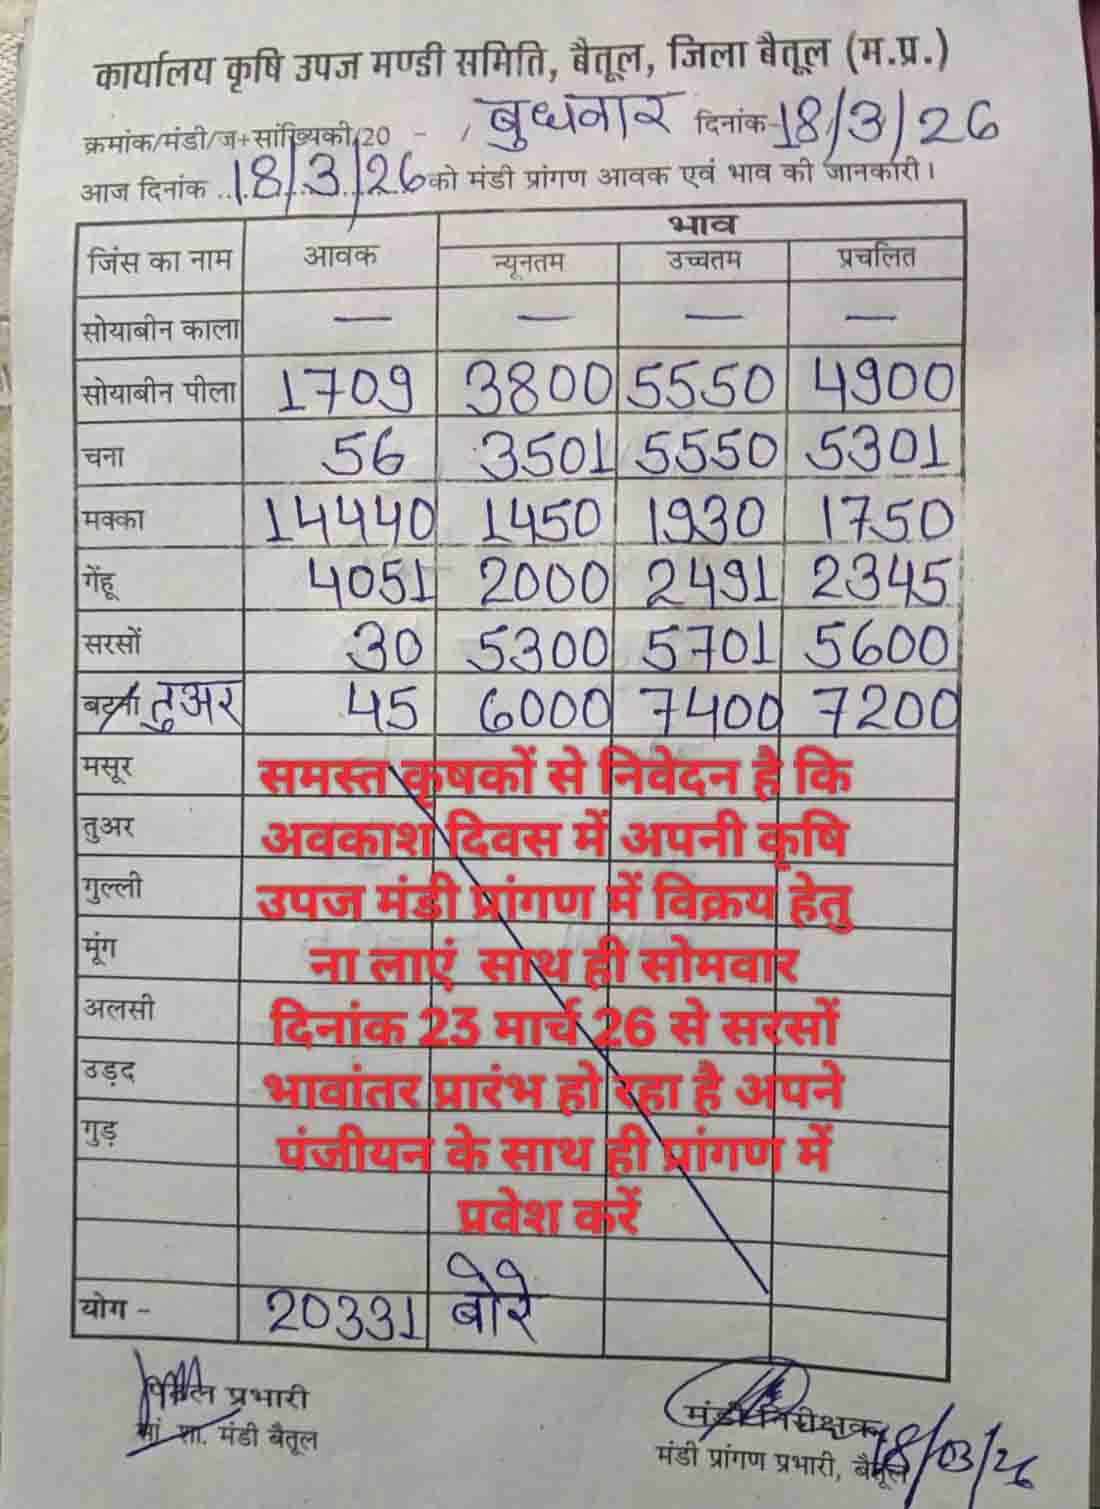 कार्यालय कृषि उपज मण्डी समिति, बैतूल, जिला बैतूल (म.प्र.)
क्रमांक/मंडी/ज+सांख्यिकी/20 - / बुधवार दिनांक 18/3/26
आज दिनांक ..18/3/26 को मंडी प्रांगण आवक एवं भाव की जानकारी।
जिंस का नाम आवक भाव
न्यूनतम उच्चतम प्रचलित
सोयाबीन काला — — — —
सोयाबीन पीला 1709 3800 5550 4900
चना 56 3501 5550 5301
मक्का 14440 1450 1930 1750
गेंहू 4051 2000 2491 2345
सरसों 30 5300 5701 5600
तुअर 45 6000 7400 7200
मसूर
तुअर
गुल्ली
मूंग
अलसी
उड़द
गुड़
समस्त कृषकों से निवेदन है कि
अवकाश दिवस में अपनी कृषि
उपज मंडी प्रांगण में विक्रय हेतु
ना लाएं साथ ही सोमवार
दिनांक 23 मार्च 26 से सरसों
भावांतर प्रारंभ हो रहा है अपने
पंजीयन के साथ ही प्रांगण में
प्रवेश करें
योग - 20331 बोरे
प्रभारी
सां. शा. मंडी बैतूल
मंडी निरीक्षक
मंडी प्रांगण प्रभारी, बैतूल
18/03/26